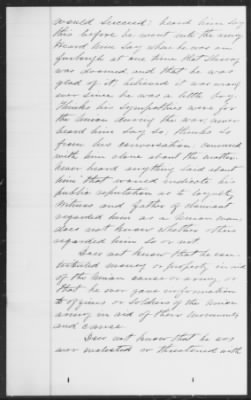 would succeed; heard him say
this before he went into the army
Heard him say when he was on
furlough at one time that Slavery
was doomed and that he was
glad of it, believed it was wrong
ever since he was a little boy.
Thinks his sympathies were for
the Union during the war; never
heard him say so; thinks so
from his conversation; conversed
with him alone about the matter.
Never heard anything said about
him that would indicate his
public reputation as to loyalty.
Witness and father of claimant
regarded him as a Union man;
does not know whether others
regarded him so or not
Does not know that he con-
tributed money or property in aid
of the Union cause or army or
that he ever gave information
to officers or soldiers of the Union
army in aid of their movements
and cause.
Does not know that he was
ever molested or threatened with